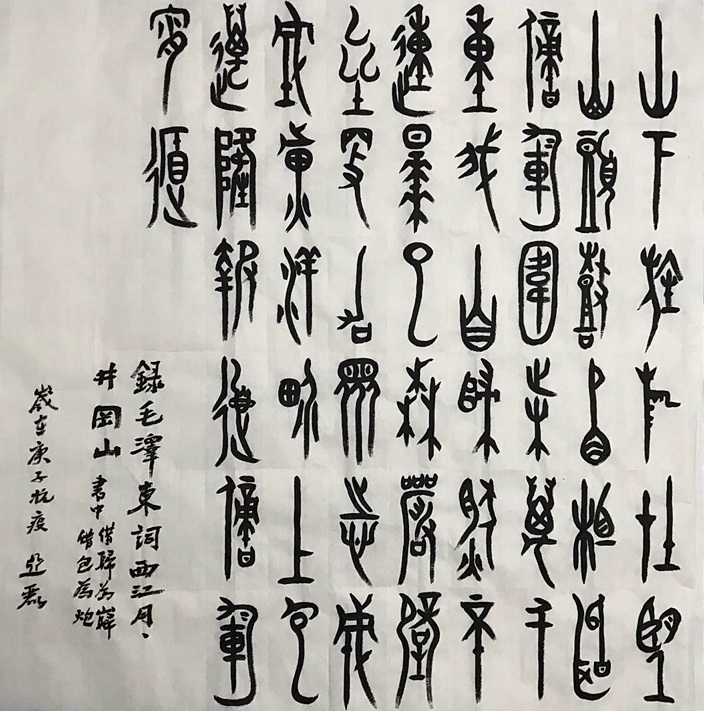 山下旌旗在望
山頭鼓角相聞
敵軍圍困萬千
重我自歸然不
動早已森嚴壁
壘更加眾志成
城黃洋界上包
聲隆報道敵軍
宵遁
錄毛澤東詞西江月、
井岡山 書中借歸為巋
借包為炮
歲在庚子抗疫